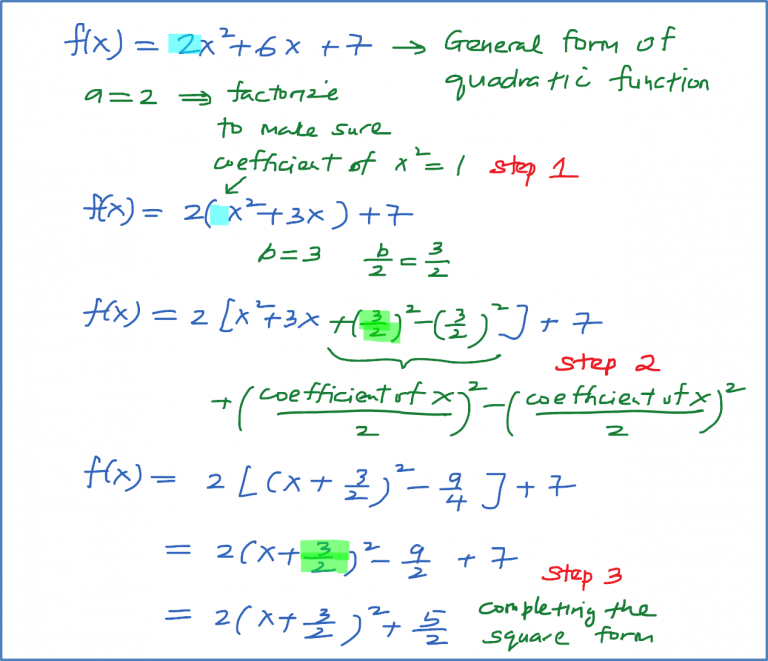 f(x) = 2x²+6x+7 → General form of
quadratic function
a=2 ⇒ factorizie
to make sure
coefficient of x²=1 step 1
f(x) = 2(x²+3x)+7
b=3 b/2 = 3/2
f(x) = 2[x²+3x+(3/2)²-(3/2)²]+7
step 2
+(coefficient of x/2)²-(coefficient of x/2)²
f(x) = 2[(x+3/2)²-9/4]+7
= 2(x+3/2)²-9/2+7
step 3
= 2(x+3/2)²+5/2 completing the
square form